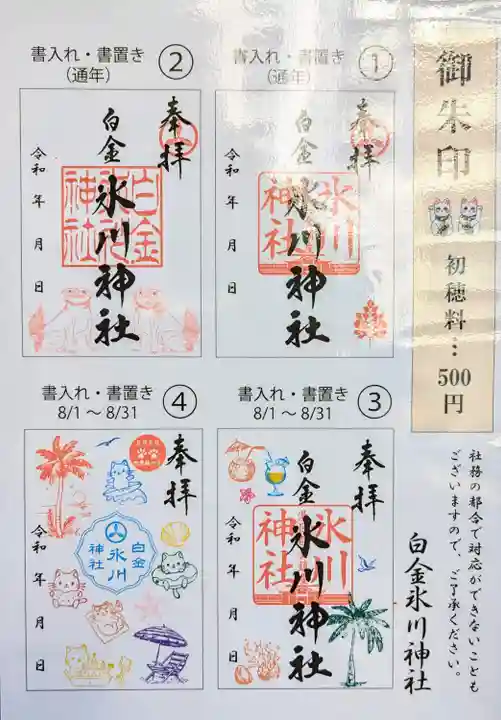 御朱印
初穂料…500円
社務の都合で対応ができないことも
ございますので、ご了承ください。
白金氷川神社
①
書入れ・書置き
(通年)
奉拝
白金
氷川神社
氷川神社
令和 年 月 日
②
書入れ・書置き
(通年)
奉拝
白金
氷川神社
白金氷川神社
令和 年 月 日
③
書入れ・書置き
8/1～8/31
奉拝
白金
氷川神社
氷川神社
令和 年 月 日
④
書入れ・書置き
8/1～8/31
奉拝
白金
氷川
神社
令和 年 月 日